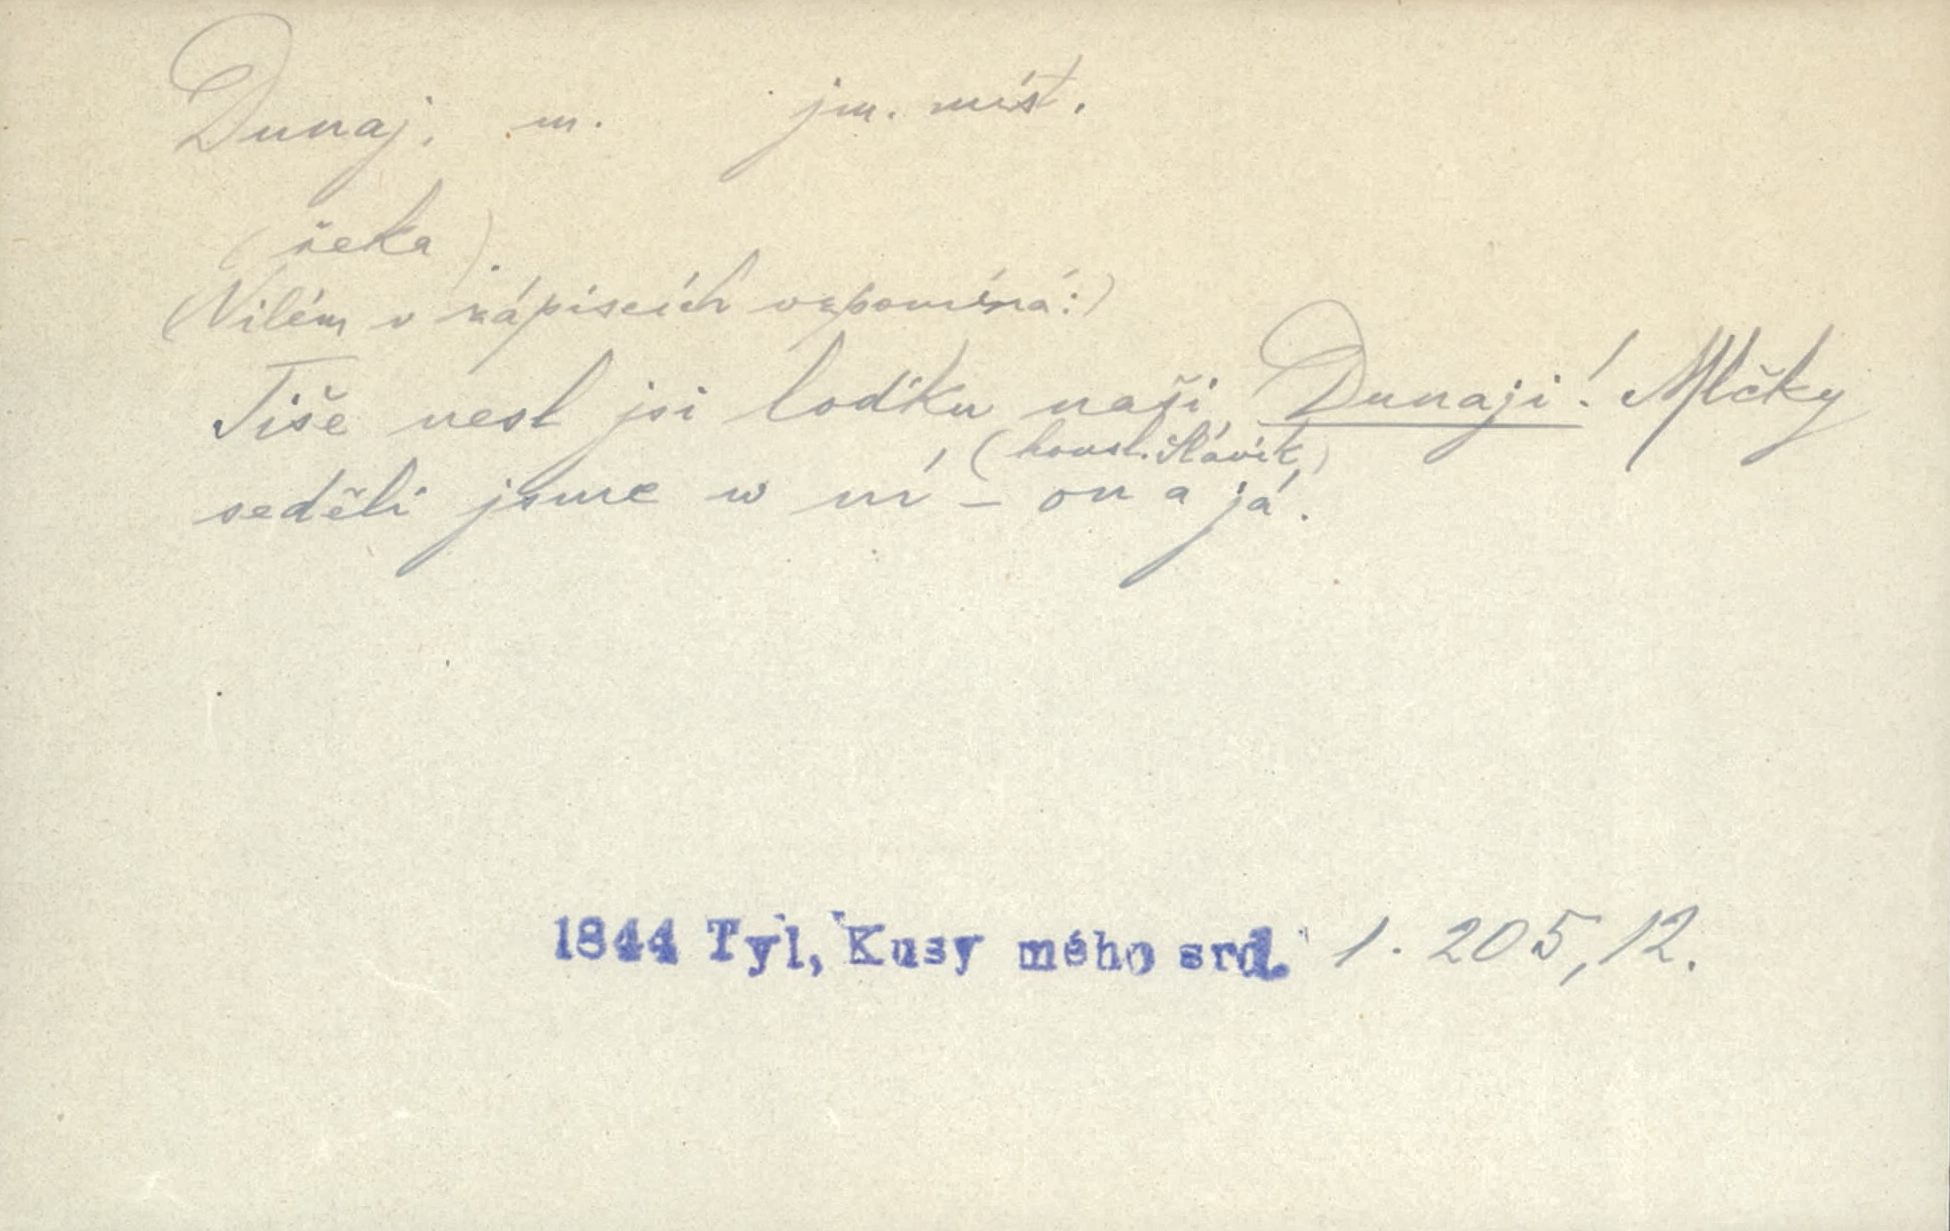 Dunaj, m. jm. míst.
(řeka).
(Vilém v zápiscích vzpomíná:)
Tiše nesl jsi loďku naši, Dunaji! Mlčky
(housl. Slavík)
seděli jsme w ní – on a já.
1844 Tyl, Kusy mého srd. 1. 205, 12.